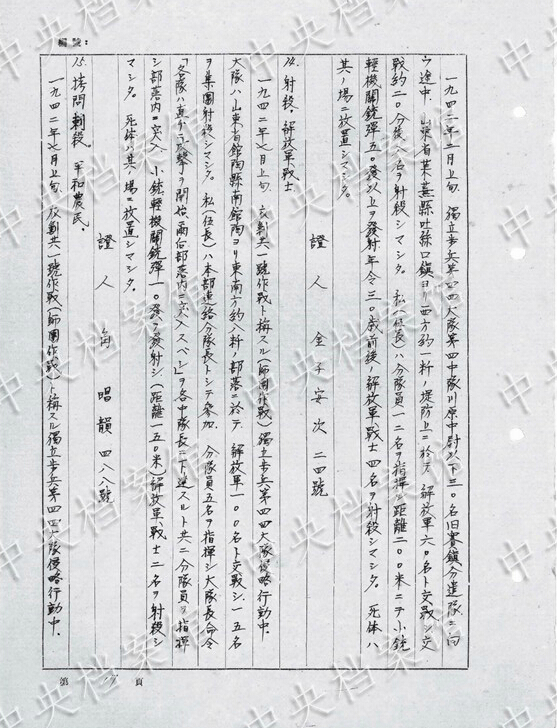 編號:
一九四二年二月上旬 獨立步兵第四四大隊第四中隊川原中尉以下三〇名旧寨鎮分遣隊ニ向
ウ途中、山東省莱蕪縣吐絲口鎮ヨリ西方約一粁ノ堤防上ニ於テ 解放軍六〇名ト交戰シ交
戰約二〇分後、八名ヲ射殺シマシタ。 私(伍長)ハ分隊員一二名ヲ指揮シ距離二〇〇米ニテ小銃
輕機關銃彈五〇發以上ヲ發射年令三〇歳前後ノ解放軍戰士四名ヲ射殺シマシタ。 死体ハ
其ノ場ニ放置シマシタ。
證人 金子安次 二四號
14. 射殺、解放軍戰士
一九四二年七月上旬、反剿共一號作戰ト稱スル(師團作戰)獨立步兵第四四大隊侵略行動中、
大隊ハ山東省館陶縣南館陶ヨリ東南方約八粁ノ部落ニ於テ 解放軍一〇〇名ト交戰シ一五名
ヲ集團射殺シマシタ。 私(伍長)ハ本部連絡分隊長トシテ参加 分隊員五名ヲ指揮シ大隊長命令
「各隊ハ直チニ攻撃ヲ開始、前面部落内ニ突入スベシ」ヲ各中隊長ニ下達スルト共ニ分隊員ヲ指揮
シ部落内ニ突入 小銃輕機關銃彈一〇發ヲ發射シ(距離一五〇米)解放軍戰士二名ヲ射殺シ
マシタ。 死体ハ其ノ場ニ放置シマシタ。
證人 角 唱韻 四八八號
15. 拷問刺殺 平和農民、
一九四二年七月上旬、反剿共一號作戰(師團作戰)ト稱スル獨立步兵第四四大隊侵略行動中、
第 頁
中央档案馆